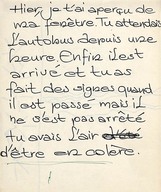 Hier, je t'ai aperçu de
ma fenêtre. Tu attendais
l'autobus depuis une
heure. Enfin il est
arrivé et tu as
fait des signes quand
il est passé mais il
ne s'est pas arrêté
tu avais l'air
d'être en colère.